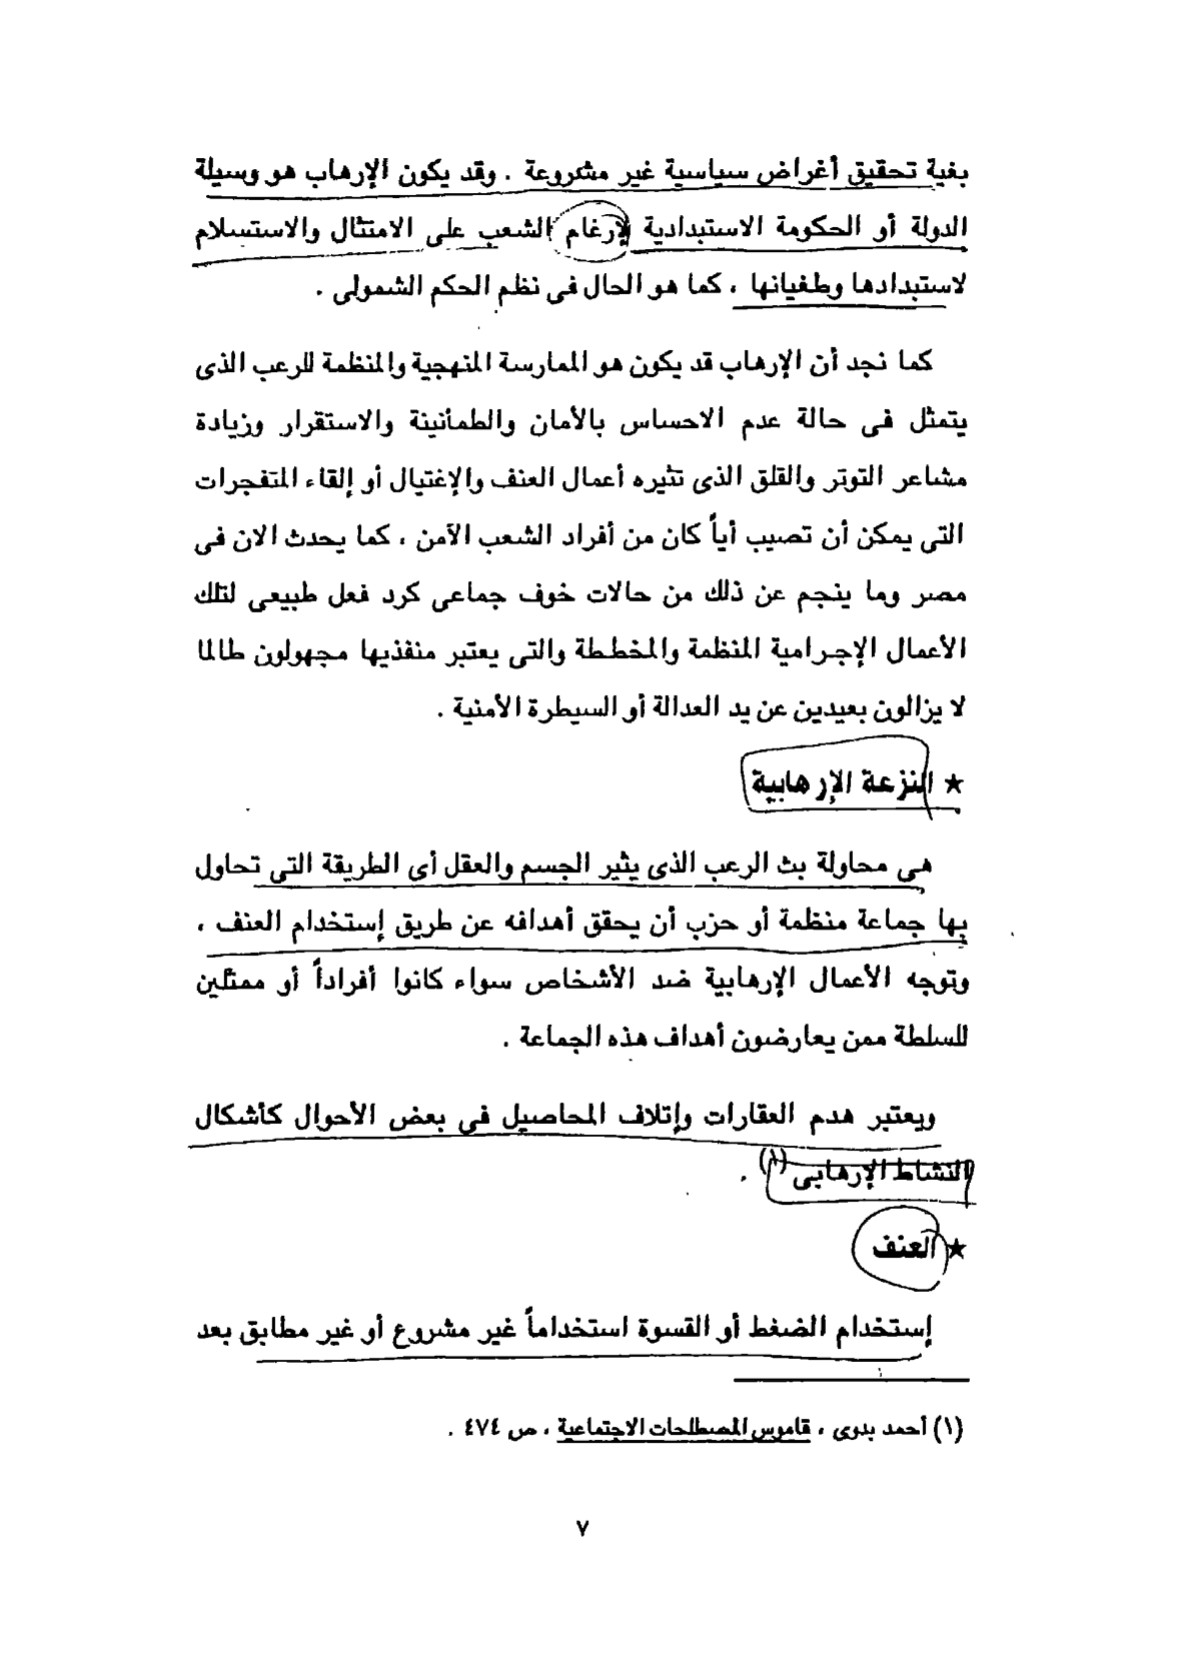 بغية تحقيق أغراض سياسية غير مشروعة . وقد يكون الإرهاب هو وسيلة
الدولة أو الحكومة الاستبدادية لإرغام الشعب على الامتثال والاستسلام
لاستبدادها وطغيانها ، كما هو الحال فى نظم الحكم الشمولى .
كما نجد أن الإرهاب قد يكون هو الممارسة المنهجية والمنظمة للرعب الذى
يتمثل فى حالة عدم الاحساس بالأمان والطمأنينة والاستقرار وزيادة
مشاعر التوتر والقلق الذى تثيره أعمال العنف والإغتيال أو إلقاء المتفجرات
التى يمكن أن تصيب أياً كان من أفراد الشعب الآمن ، كما يحدث الان فى
مصر وما ينجم عن ذلك من حالات خوف جماعى كرد فعل طبيعى لتلك
الأعمال الإجرامية المنظمة والمخططة والتى يعتبر منفذيها مجهولون طالما
لا يزالون بعيدين عن يد العدالة أو السيطرة الأمنية .
★ النزعة الإرهابية
هى محاولة بث الرعب الذى يثير الجسم والعقل أى الطريقة التى تحاول
بها جماعة منظمة أو حزب أن يحقق أهدافه عن طريق إستخدام العنف ،
وتوجه الأعمال الإرهابية ضد الأشخاص سواء كانوا أفراداً أو ممثلين
للسلطة ممن يعارضون أهداف هذه الجماعة .
ويعتبر هدم العقارات وإتلاف المحاصيل فى بعض الأحوال كأشكال
النشاط الإرهابى (١) .
★ العنف
إستخدام الضغط أو القسوة استخداماً غير مشروع أو غير مطابق بعد
(١) أحمد بدوى ، قاموس المصطلحات الاجتماعية ، ص ٤٧٤ .
٧